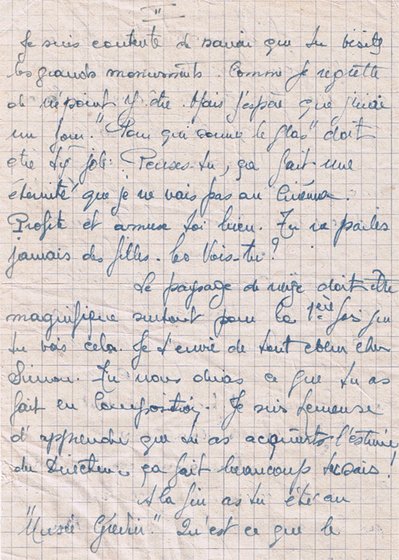 II
Je suis contente de savoir que tu visites
les grands monuments. Comme je regrette
de n'point y être. Mais j'espère que j'irai
un jour. "Pour qui sonne le glas" doit
être très joli. Penses-tu, ça fait une
éternité que je ne vais pas au Cinéma.
Profite et amuse toi bien. Tu ne parles
jamais des filles. les Vois-tu?
Le paysage de neige doit être
magnifique surtout pour la 1ère fois que
tu vois cela. Je t'envie de tout cœur cher
Simon. Tu nous diras ce que tu as
fait en Composition. Je suis heureuse
d'apprendre que tu as acquis l'estime
du Directeur ça fait beaucoup tu sais!
A la fin as tu été au
"Musée Grévin". Qu'est ce que le